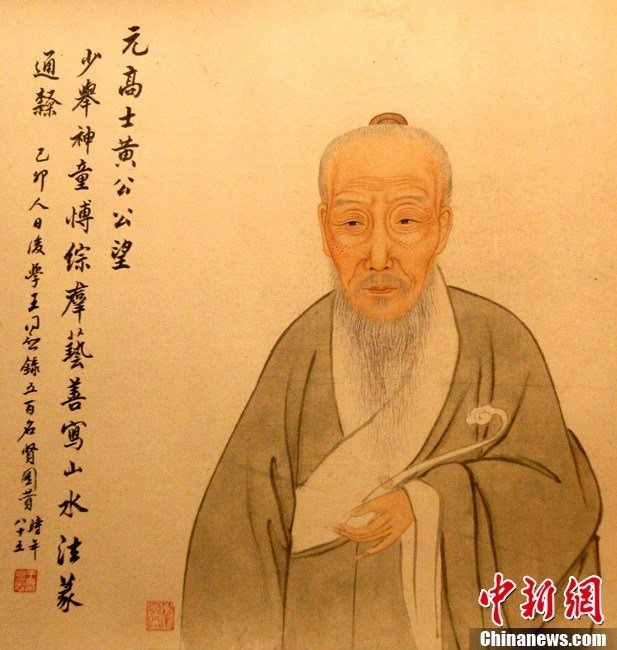 元高士黄公公望
少舉神童愽綜羣藝善寫山水法篆
通隸
己卯人日後學王同愈錄五百名賢圖贊時年
八十五
中新網
Chinanews.com